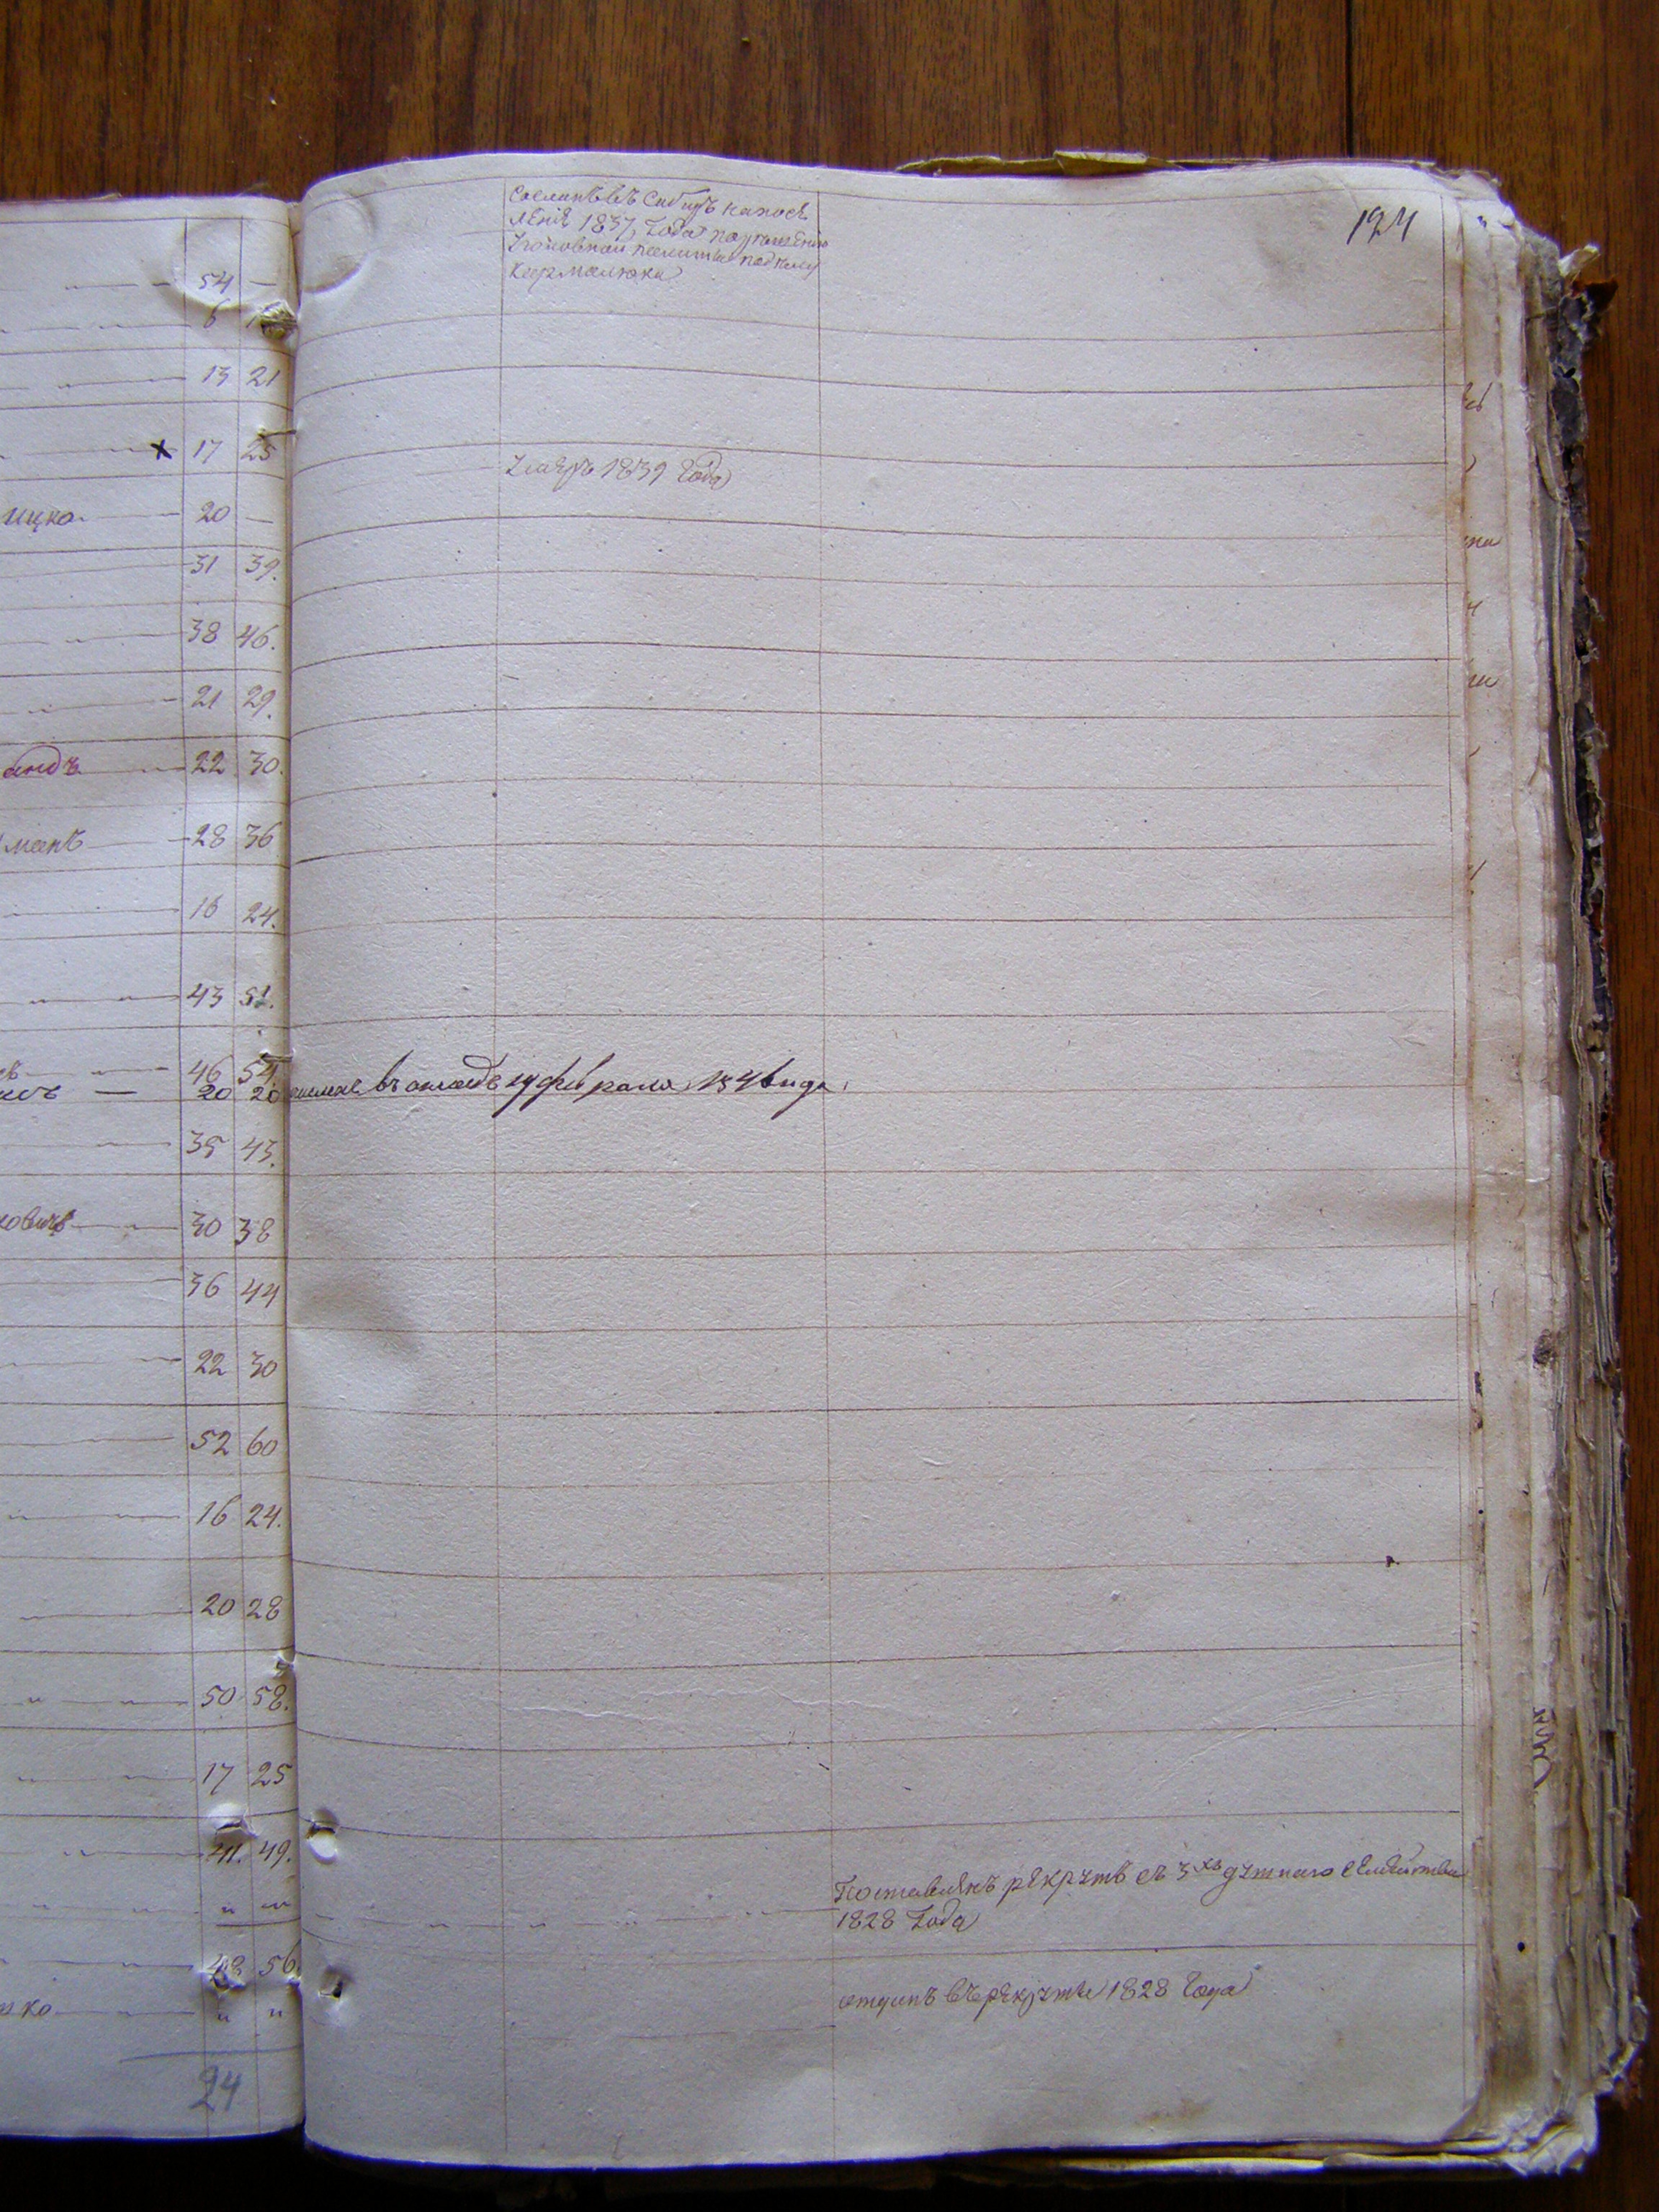 Сосланъ въ Сибирь на посе
ленiе 1837 Года по решенiю
Уголовной палаты
Кармалюка
194
54 —
6
13 21
17 25
Умеръ 1839 Года
ицко 20 —
31 39.
38 46.
21 29.
андъ 22 30.
манъ 28 36
16 24.
43 51.
46 54.
20 20 февраля 1846 года
35 43.
ковичъ 30 38
36 44
22 30
52 60
16 24.
20 28
50 58.
17 25
41. 49.
Поставленъ рекрутъ съ 3хъ душнаго семейства
" "
1828 Года
48 56.
отданъ въ рекруты 1828 Года
ко " "
24